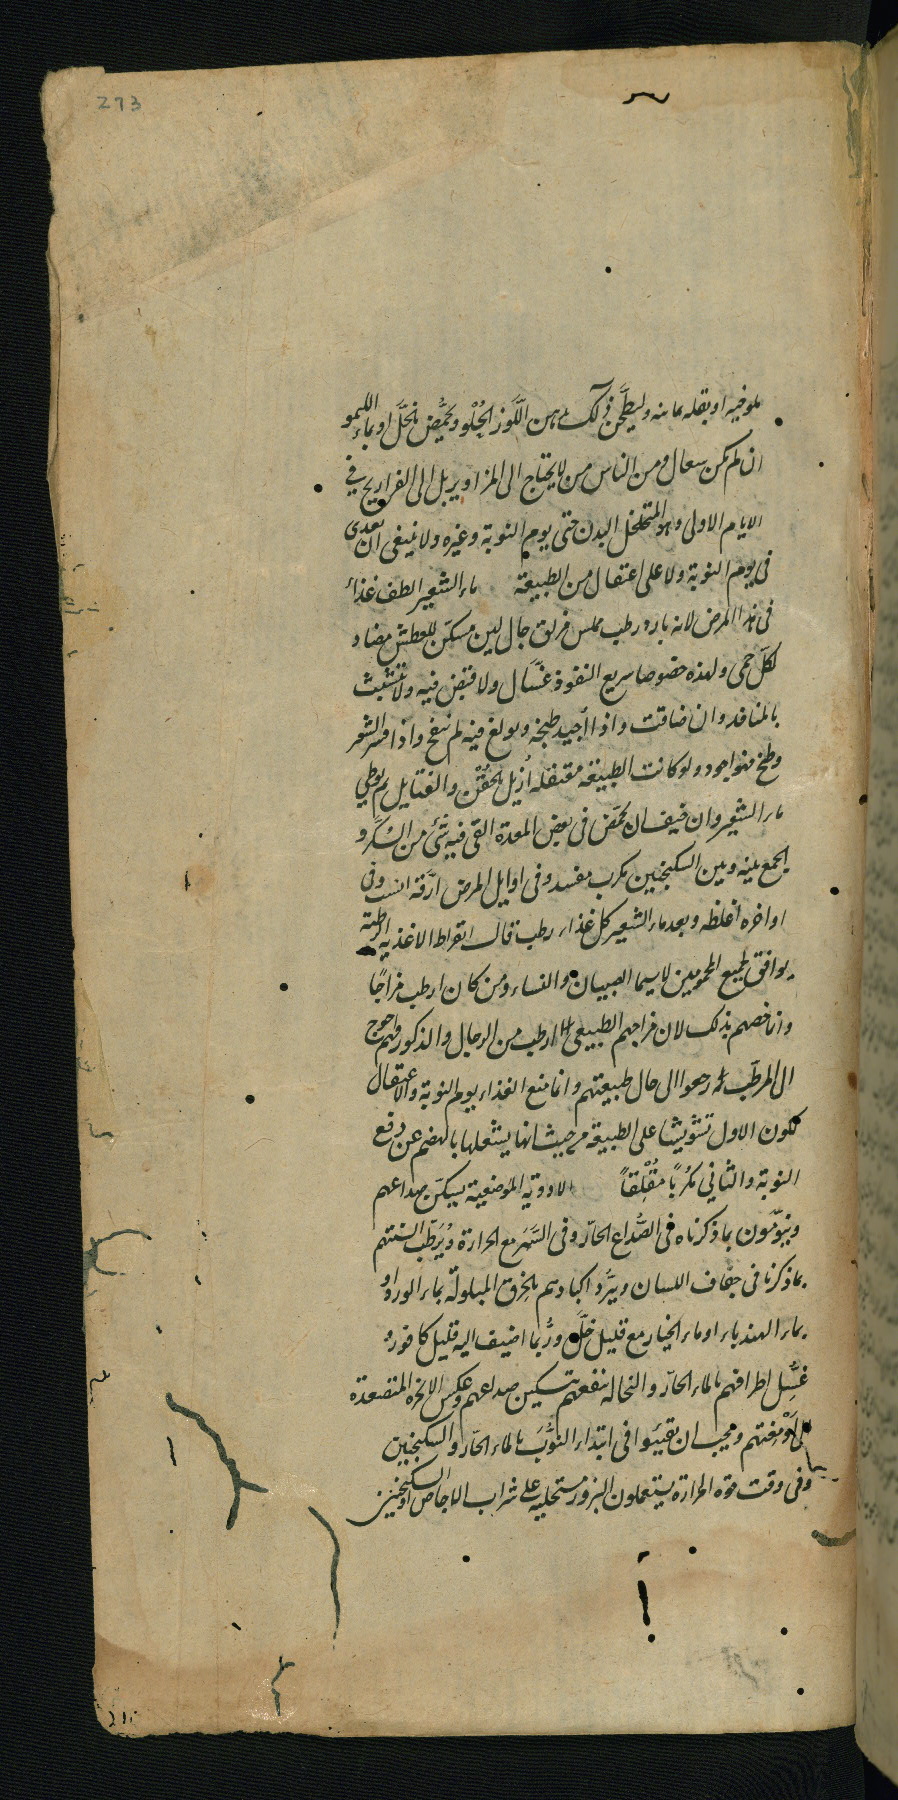 273
ملوخيه او بقله يمانيه وليطجن ذلك بدهن اللوز الحلو ويحمض بالخل او بماء الليمو
ان لم يكن سعال ومن الناس من لا يحتاج الى المزاوير بل الى الفراريج في
الايام الاولى وهو المتخلخل البدن حتى يوم النوبة وغيره ولا ينبغى ان يغدى
فى يوم النوبة ولا على اعتقال من الطبيعة ماء الشعير الطف غذاء
فى هذا المرض لانه بارد رطب مملس مزلق جال لين مسكن للعطش مضاد
لكل حمى ولهذه خصوصا سريع النفوذ غسال ولا قبض فيه ولا تشبث
بالمنافذ وان ضاقت واذا اجيد طبخه وبولغ فيه لم ينفخ واذا قشر الشعير
وطبخ فهو اجود ولو كانت الطبيعة معتقله ازيل بالحقن والفتايل ثم يعطى
ماء الشعير وان خيف ان يحمض فى بعض المعدة القى فيه شئ من السكر و
الجمع بينه وبين السكنجبين مكرب مفسد وفى اوايل المرض ارقه انسب وفى
اواخره اغلظه وبعد ماء الشعير كل غذاء رطب قال ابقراط الاغذيه الرطبة
يوافق لجميع المحمومين لاسيما الصبيان والنساء ومن كان ارطب مزاجا
وانما خصهم بذلك لان مزاجهم الطبيعى ارطب من الرجال والذكور فهم احوج
الى المرطب لرجعوا الى حال طبيعتهم وانما منع الغذاء يوم النوبة والاعتقال
لكون الاول تشويشا على الطبيعة من حيث انها يشغلها بالهضم عن دفع
النوبة والثانى مكربا مقلقا الادوية الموضعية يسكن صداعهم
وينومون بما ذكرناه فى الصداع الحار وفى السهر مع الحرارة ويرطب السنتهم
بماذكرنا فى جفاف اللسان ويبرد اكبادهم بالخرق المبلولة بماء الورد او
بماء الهندباء او ماء الخيار مع قليل خل وربما اضيف اليه قليل كافور و
غسل اطرافهم بالماء الحار والنخالة ينفعهم تسكين صداعهم وعكس الابخرة المتصعدة
الى ادمغتهم ويجب ان يقيئوا فى ابتداء النوب بالماء الحار والسكنجبين
وفى وقت قوة الحرارة يستعملون البزور مستحلبه على شراب الاجاص او السكنجبين